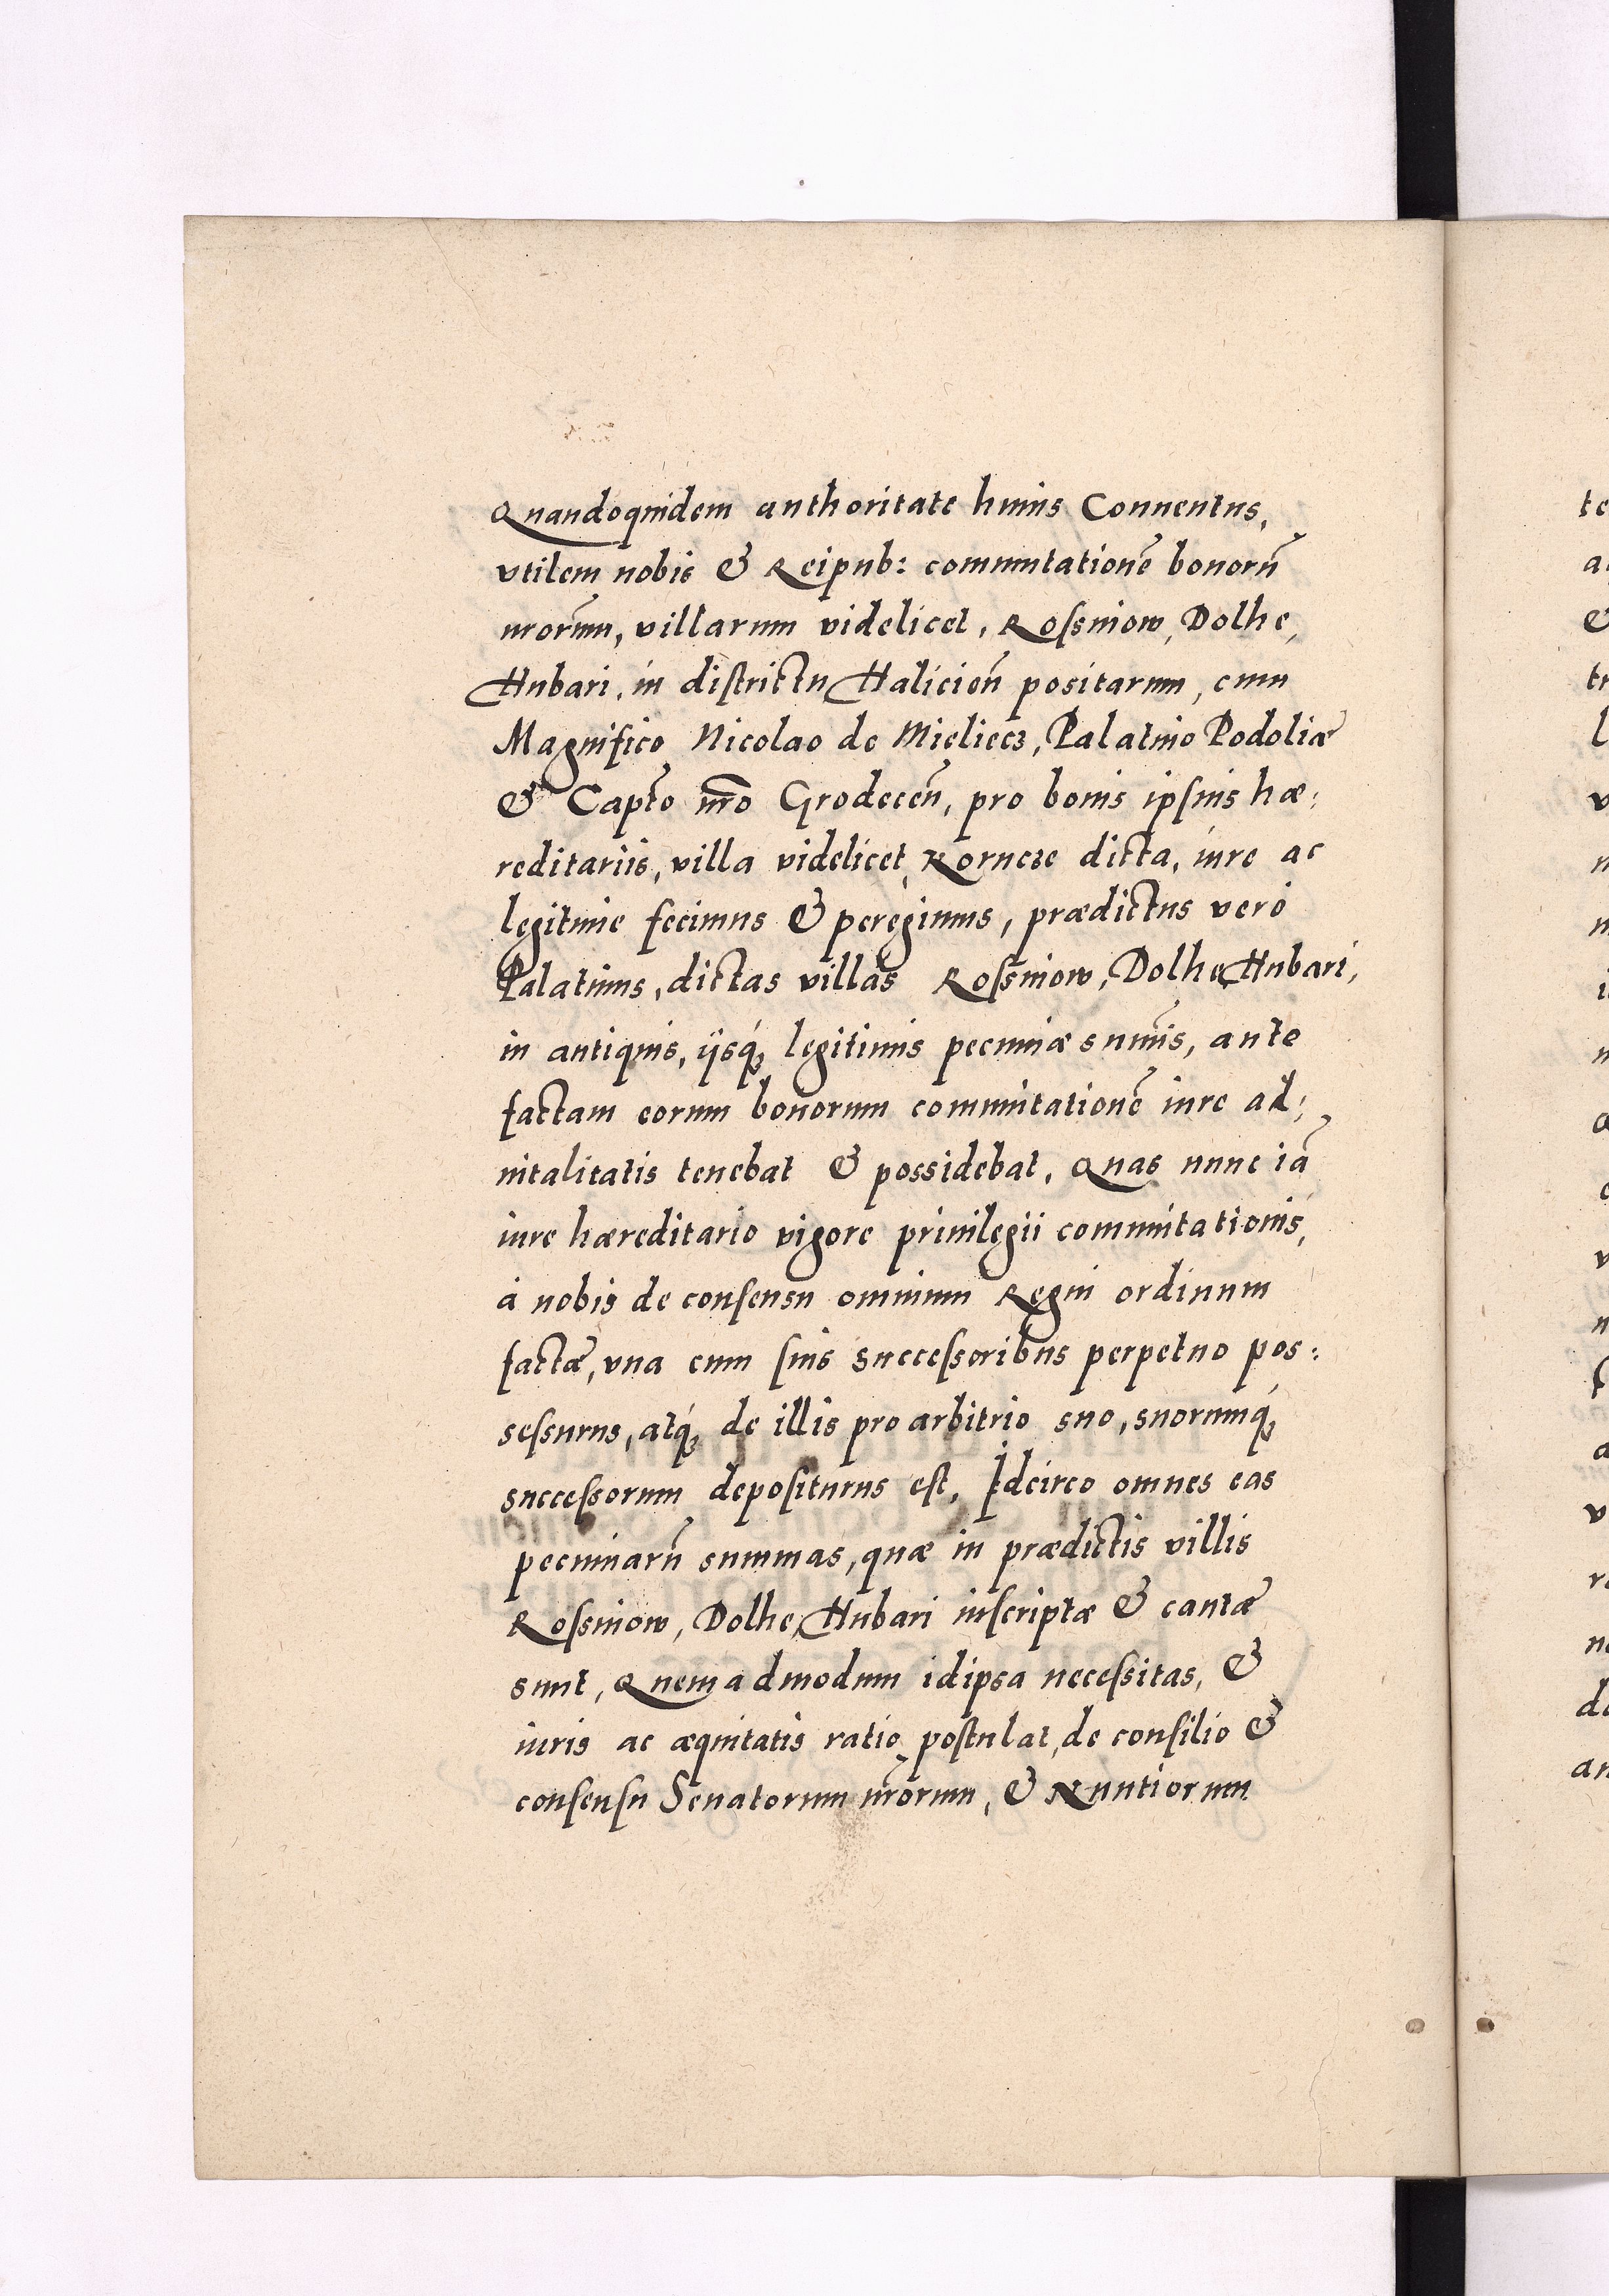 Quandoquidem authoritate huius Conuentus,
vtilem nobis & Reipub: comutationē bonorū
nr̄orum, villarum videlicet, Rossniow, Dolhe,
Hubari, in districtu Halicień positarum, cum
Magnifico Nicolao de Mieliecz, Palatino Podoliæ
& Captō nr̄o Grodeceń, pro bonis ipsius hæ:
reditariis, villa videlicet, Norncze dicta, iure ac
legitime fecimus & peregimus, prædictus veró
Palatinus, dictas villas Rossniow, Dolhe, Hubari,
in antiquis, ijsq́ꝫ legitimis pecuniæ sum̄is, ante
factam eorum bonorum commutationē iure ad:
uitalitatis tenebat & possidebat, Quas nunc iā
iure hæreditario vigore priuilegii commutationis,
á nobis de consensu omnium Regni ordinum
factæ, vna cum suis successoribus perpetuo pos:
sessurus, atq́ꝫ de illis pro arbitrio suo, suorumq́ꝫ
successorum depositurus est, Idcirco omnes eas
pecuniarū summas, quæ in prædictis villis
Rossniow, Dolhe, Hubari inscriptæ & cautæ
sunt, Quemadmodum id ipsa necessitas, &
iuris ac æquitatis ratio postulat, de consilio &
consensu Senatorum nr̄orum, & Nuntiorum